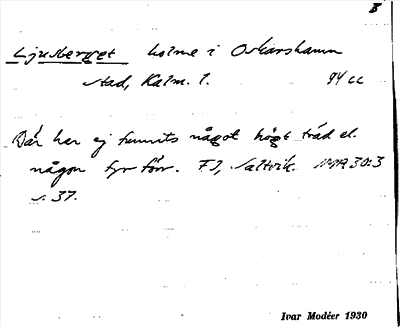 B
Ljusberget holme i Oskarshamn
stad, Kalm. l. 94 cc
Där har ej funnits något högt träd el.
någon fyr förr. FJ, Saltvik. MA 30:3
s. 37.
Ivar Modéer 1930